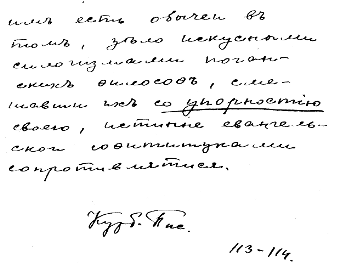 имъ есть обычеи въ
томъ, зѣло искусными
силогизмами поган-
скихъ философъ, сме-
шавши ихъ со упорностію
своею, истинне евангель-
скои сопротивлятися.
Курб. Пис.
113-114.